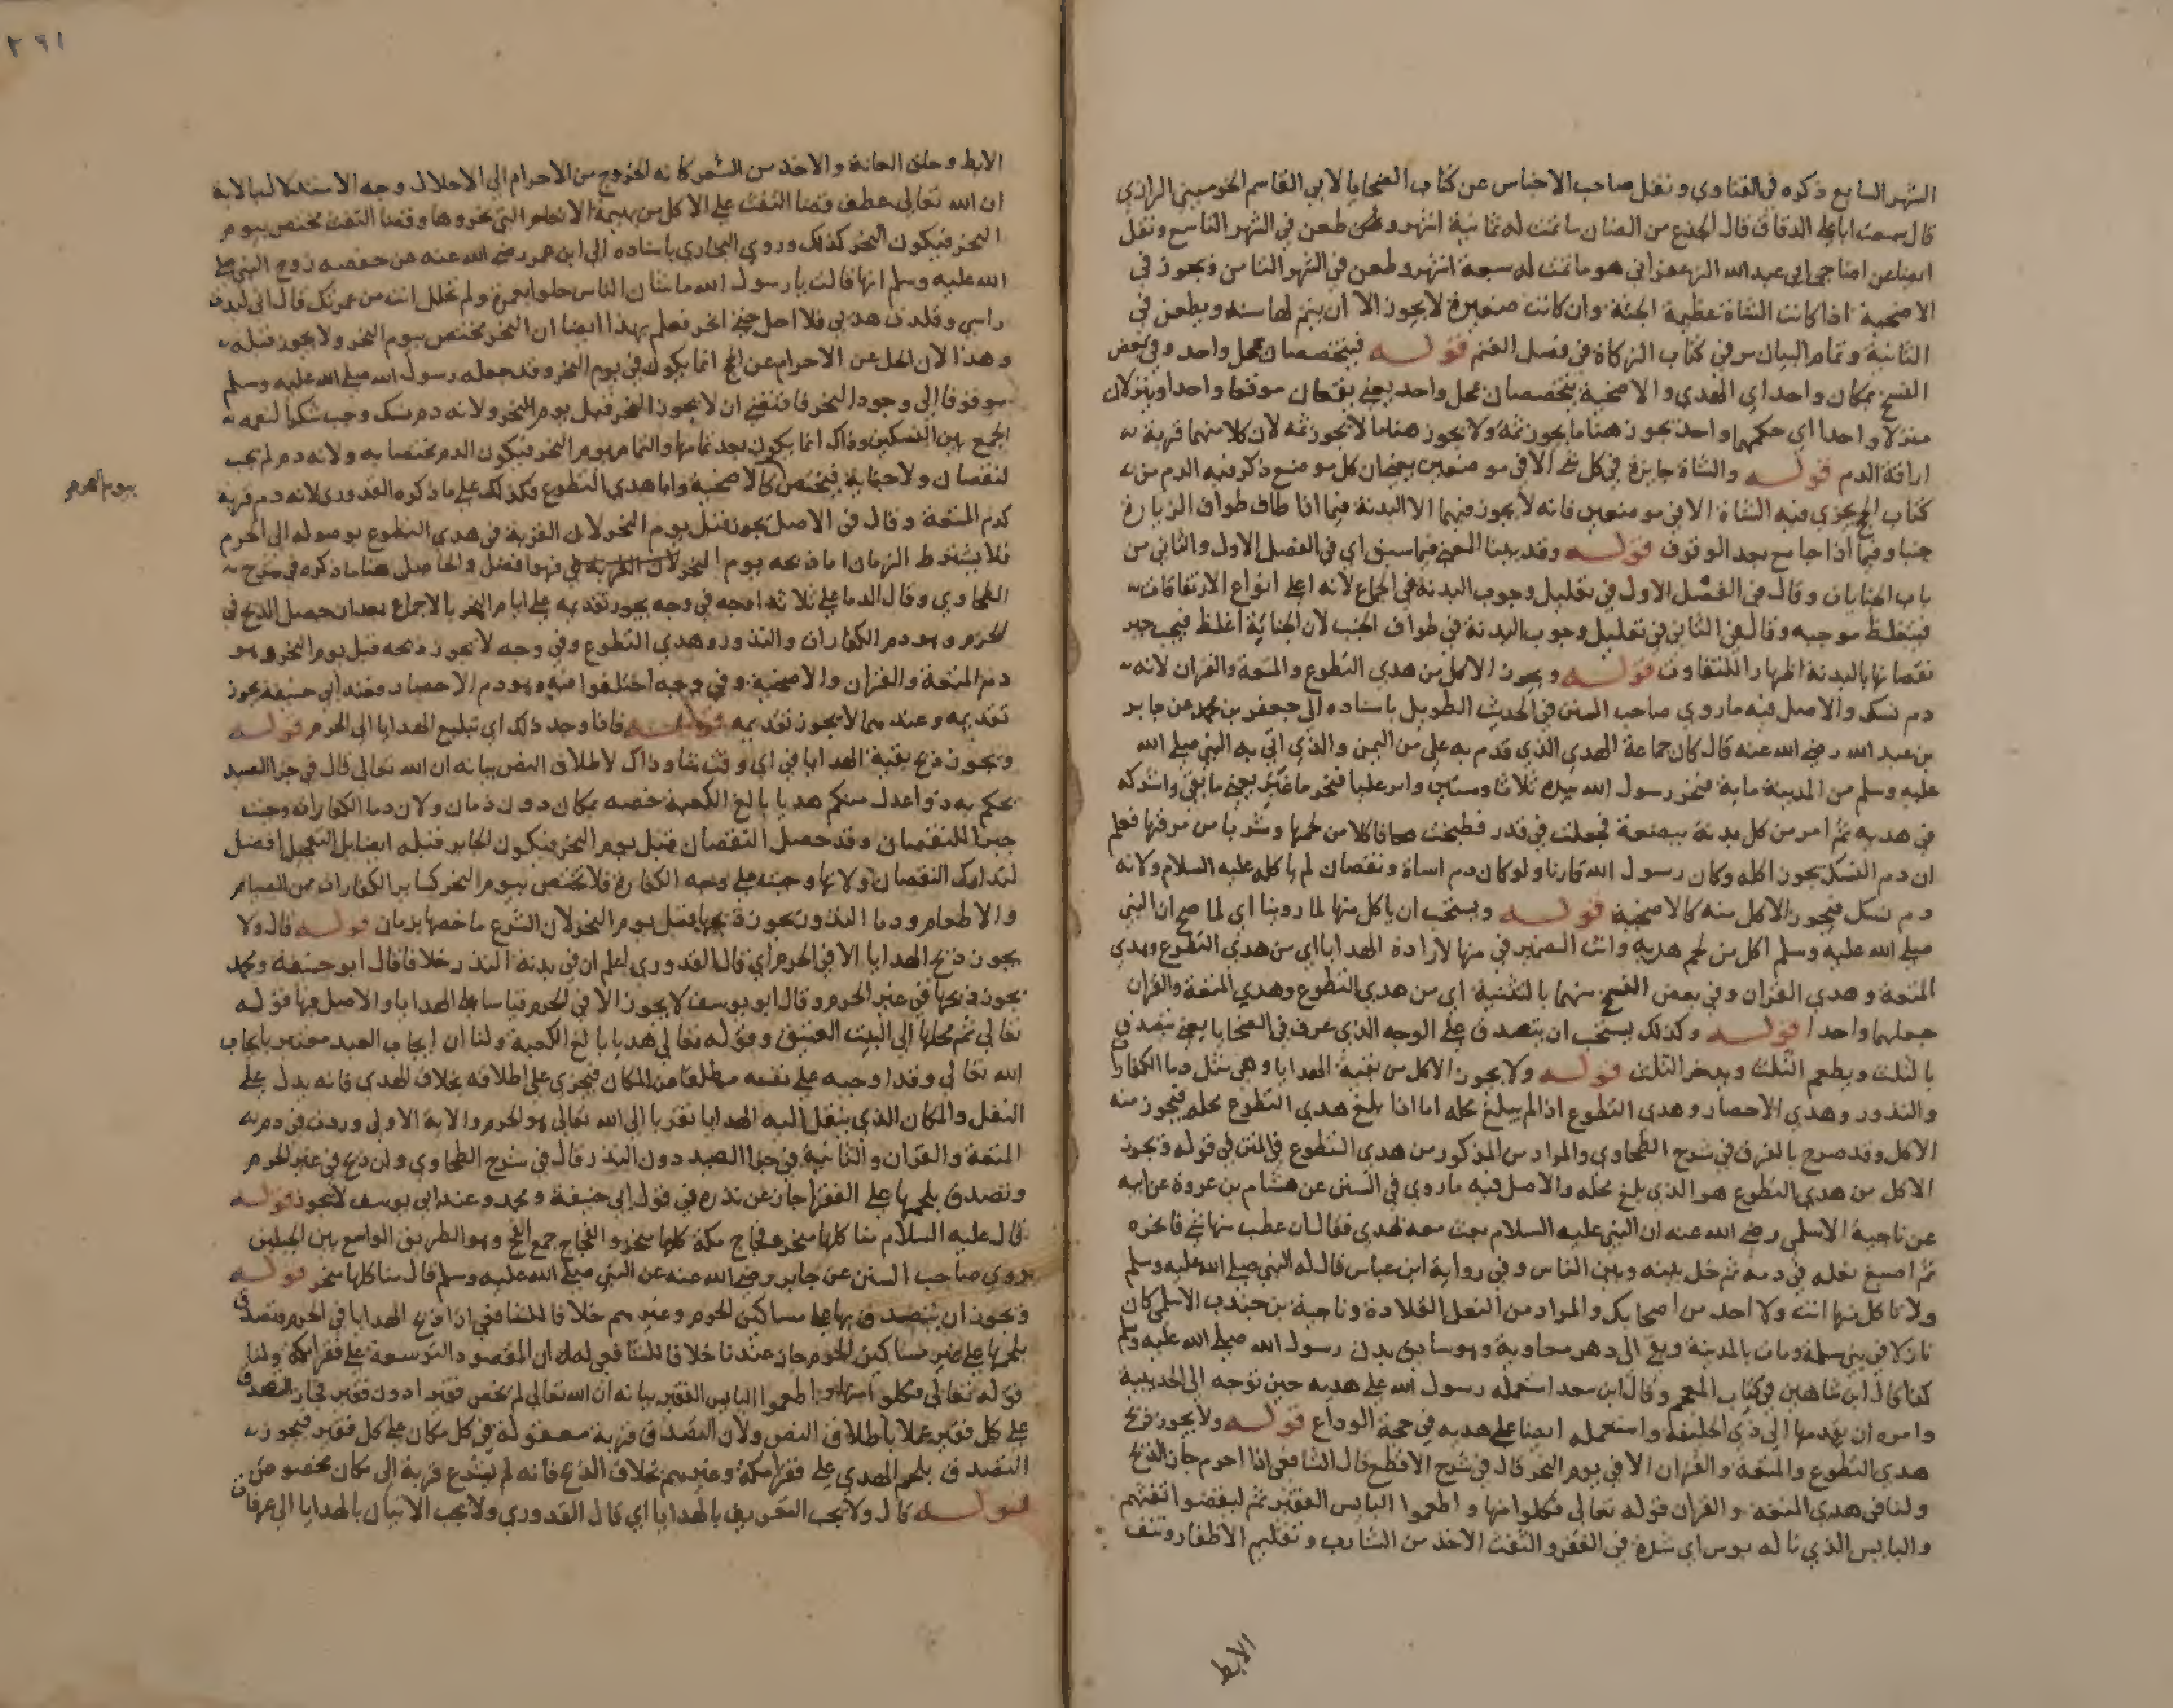 الشهر السابع ذكره في الفتاوي ونقل صاحب الاجناس عن كتاب الضحايا لابي القاسم الخرميني الرازي
قال سمعت ابا علي الدقاق قال الجذع من الضان ما تمت له ثمانية اشهر وطعن في الشهر التاسع ونقل
ايضا عن اضاحي ابي عبد الله الزعفراني هو ما تمت له سبعة اشهر وطعن في الشهر الثامن ويجوز في
الاضحية اذا كانت الشاة عظيمة الجثة وان كانت صغيرة لا يجوز الا ان يتم لها سنة ويطعن في
الثانية وتمام البيان مر في كتاب الزكاة في فصل الغنم قوله فيتخصصان بمحل واحد وفي بعض
النسخ بمكان واحد اي الهدي والاضحية يتخصصان بمحل واحد يعني يقعان موقعا واحدا وينزلان
منزلا واحدا اي حكمهما واحد يجوز هنا ما يجوز ثمة ولا يجوز هنا ما لا يجوز ثمة لان كلا منهما قربة
اراقة الدم قوله والشاة جايزة في كل شي الا في موضعين يعني ان كل موضع ذكر فيه الدم من
كتاب الحج يجزي فيه الشاة الا في موضعين فانه لا يجوز فيهما الا البدنة فيما اذا طاف طواف الزيارة
جنبا وفيما اذا جامع بعد الوقوف قوله وقد بينا المعنى فيما سبق اي في الفصل الاول والثاني من
باب الجنايات وقال في الفصل الاول في تعليل وجوب البدنة في الجماع لانه اعلى انواع الارتفاقات
فيتغلظ موجبه وقال في الثاني في تعليل وجوب البدنة في طواف الجنب لان الجناية اغلظ فيجب جبر
نقصانها بالبدنة اظهارا للتفاوت قوله ويجوز الاكل من هدي التطوع والمتعة والقران لانه
دم نسك والاصل فيه ما روي صاحب السنن في الحديث الطويل باسناده الى جعفر بن محمد عن جابر
بن عبد الله رضي الله عنه قال كان جماعة الهدي الذي قدم به علي من اليمن والذي اتى به النبي صلى الله
عليه وسلم من المدينة ماية فنحر رسول الله بيده ثلاثا وستين وامر عليا فنحر ما غبر يعني ما بقي واشركه
في هديه ثم امر من كل بدنة ببضعة فجعلت في قدر فطبخت فاكلا من لحمها وشربا من مرقها فعلم
ان دم النسك يجوز اكله وكان رسول الله قارنا ولو كان دم اساة ونقصان لم ياكله عليه السلام ولانه
دم نسك فيجوز الاكل منه كالاضحية قوله ويستحب ان ياكل منها لما روينا اي لما صح ان النبي
صلى الله عليه وسلم اكل من لحم هديه وانث الضمير في منها لارادة الهدايا اي من هدي التطوع وهدي
المتعة وهدي القران وفي بعض النسخ منهما بالتثنية اي من هدي التطوع وهدي المتعة والقران
جعلهما واحدا قوله وكذلك يستحب ان يتصدق على الوجه الذي عرف في الضحايا يعني يتصدق
بالثلث ويطعم الثلث ويدخر الثلث قوله ولا يجوز الاكل من بقية الهدايا وهي مثل دما الكفارات
والنذور وهدي الاحصار وهدي التطوع اذا لم يبلغ محله اما اذا بلغ هدي التطوع محله فيجوز منه
الاكل وقد صرح بالفرق في شرح الطحاوي والمراد من المذكور من هدي التطوع في المتن في قوله ويجوز
الاكل من هدي التطوع هو الذي بلغ محله والاصل فيه ما روي في السنن عن هشام بن عروة عن ابيه
عن ناجية الاسلمي رضي الله عنه ان النبي عليه السلام بعث معه بهدي فقال ان عطب منها شي فانحره
ثم اصبغ نعله في دمه ثم خل بينه وبين الناس وفي رواية ابن عباس قال له النبي صلى الله عليه وسلم
ولا تاكل منها انت ولا احد من اصحابك والمراد من النعل القلادة وناجية بن جندب الاسلمي كان
نازلا في بني سلمة ومات بالمدينة وبقي الى دهر معاوية وهو سايق بدن رسول الله صلى الله عليه وسلم
كذا قال ابن شاهين في كتاب المعجم وقال ابن سعد استعمله رسول الله على هديه حين توجه الى الحديبية
وامره ان يقدمها الى ذي الحليفة واستعمله ايضا على هديه في حجة الوداع قوله ولا يجوز ذبح
هدي التطوع والمتعة والقران الا في يوم النحر قال في شرح الاقطع قال الشافعي اذا احرم جاز الذبح
ولنا في هدي المتعة والقران قوله تعالى فكلوا منها واطعموا البايس الفقير ثم ليقضوا تفثهم
والبايس الذي ناله بوس اي شدة في الفقر والتفث الاخذ من الشارب وتقليم الاظفار ونتف
الابط
٢٩١
الابط وحلق العانة والاخذ من الشعر كانه الخروج من الاحرام الى الاحلال وجه الاستدلال بالاية
ان الله تعالى عطف قضا التفث على الاكل من بهيمة الانعام التي نحروها وقضا التفث مختص بيوم
النحر فيكون النحر كذلك وروي البخاري باسناده الى ابن عمر رضي الله عنه عن حفصه زوج النبي صلى
الله عليه وسلم انها قالت يا رسول الله ما شان الناس حلوا بعمرة ولم تحلل انت من عمرتك قال اني لبدت
راسي وقلدت هديي فلا احل حتى انحر فعلم بهذا ايضا ان النحر مختص بيوم النحر ولا يجوز قبله
وهذا لان الحل عن الاحرام عن الحج انما يكون في يوم النحر وقد جعله رسول الله صلى الله عليه وسلم
موقوفا الى وجود النحر فاقتضى ان لا يجوز النحر قبل يوم النحر ولانه دم نسك وجب شكرا لنعمة
الجمع بين النسكين وذاك انما يكون بعد تمامها والتمام يوم النحر فيكون الدم مختصا به ولانه دم لم يجب
لنقصان ولا جناية فيختص كالاضحية واما هدي التطوع فكذلك على ما ذكره القدوري لانه دم قربة
بيوم النحر
كدم المتعة وقال في الاصل يجوز قبل يوم النحر لان القربة في هدي التطوع بوصوله الى الحرم
فلا يشترط الزمان اما ذبحه يوم النحر لان القربة في فهو افضل والحاصل هنا ما ذكره في شرح
الطحاوي وقال الدما على ثلاثة اوجه في وجه يجوز تقديمه على ايام النحر بالاجماع بعد ان حصل الذبح في
الحرم وهو دم الكفارات والنذور وهدي التطوع وفي وجه لا يجوز ذبحه قبل يوم النحر وهو
دم المتعة والقران والاضحية وفي وجه اختلفوا فيه وهو دم الاحصار فعند ابي حنيفة يجوز
تقديمه وعندهما لا يجوز تقديمه قوله فاذا وجد ذلك اي تبليغ الهدايا الى الحرم قوله
ويجوز ذبح بقية الهدايا في اي وقت شا وذاك لاطلاق النص بيانه ان الله تعالى قال في جزا الصيد
يحكم به ذوا عدل منكم هديا بالغ الكعبة خصه بمكان دون زمان ولان دما الكفارات وجبت
جبرا للنقصان وقد حصل النقصان قبل يوم النحر فيكون الجابر قبله ايضا بل التعجيل افضل
لتدارك النقصان ولانها وجبت على وجه الكفارة فلا تختص بيوم النحر كساير الكفارات من الصيام
والاطعام ودما النذور يجوز ذبحها قبل يوم النحر لان الشرع ما خصها بزمان قوله قال ولا
يجوز ذبح الهدايا الا في الحرم اي قال القدوري اعلم ان في بدنة النذر خلافا قال ابو حنيفة ومحمد
يجوز ذبحها في غير الحرم وقال ابو يوسف لا يجوز الا في الحرم قياسا على الهدايا والاصل فيها قوله
تعالى ثم محلها الى البيت العتيق وقوله تعالى هديا بالغ الكعبة ولنا ان ايجاب العبد معتبر بايجاب
الله تعالى وقد اوجبه على نفسه مطلقا من المكان فيجري على اطلاقه بخلاف الهدي فانه يدل على
النقل والمكان الذي ينقل اليه الهدايا تقربا الى الله تعالى هو الحرم والاية الاولى وردت في دم
المتعة والقران والثانية في جزا الصيد دون النذر قال في شرح الطحاوي ولو ذبح في غير الحرم
وتصدق بلحمها على الفقرا جاز عن نذره في قول ابي حنيفة ومحمد وعند ابي يوسف لا يجوز قوله
قال عليه السلام منا كلها منحر وفجاج مكة كلها منحر والفجاج جمع الفج وهو الطريق الواسع بين الجبلين
روي صاحب السنن عن جابر رضي الله عنه عن النبي صلى الله عليه وسلم قال منا كلها منحر قوله
ويجوز ان يتصدق بها على مساكين الحرم وغيرهم خلافا للشافعي اذا ذبح الهدايا في الحرم وتصدق
بلحمها على غير مساكين الحرم جاز عندنا خلافا للشافعي له ان المقصود التوسعة على فقرا مكة ولنا
قوله تعالى فكلوا منها واطعموا البايس الفقير بيانه ان الله تعالى لم يخص فقيرا دون فقير فجاز التصدق
على كل فقير عملا باطلاق النص ولان التصدق قربة معقولة في كل مكان على كل فقير فيجوز
التصدق بلحم الهدي على فقرا مكة وغيرهم بخلاف الذبح فانه لم يشرع قربة الى مكان مخصوص
قوله قال ولا يجب التعريف بالهدايا اي قال القدوري ولا يجب الاتيان بالهدايا الى عرفات